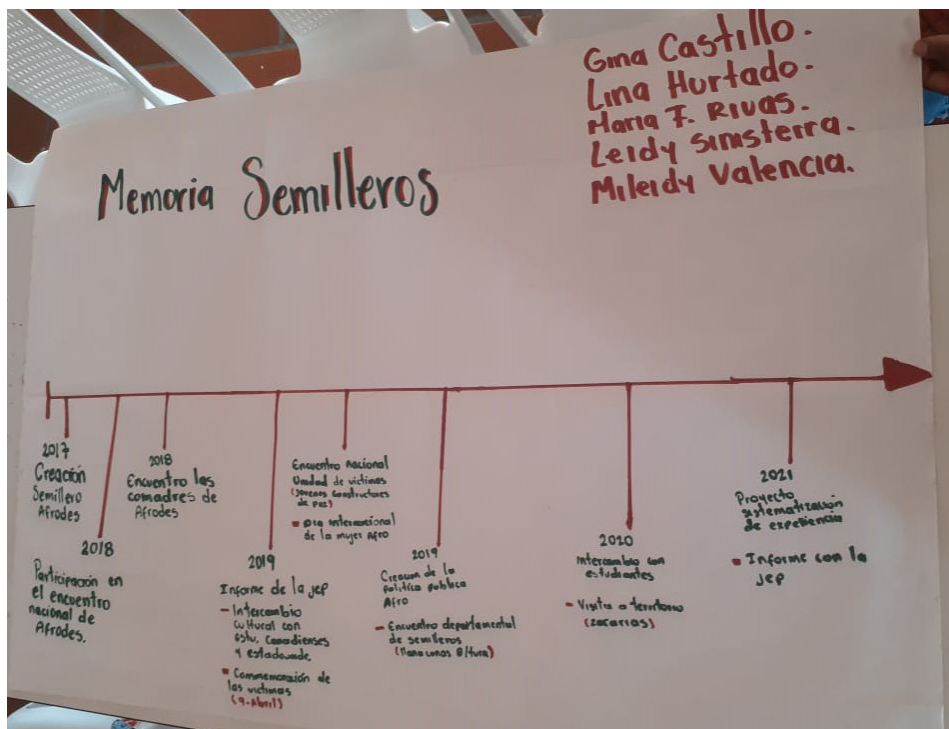 Gina Castillo.
Lina Hurtado.
Maria F. Rivas.
Leidy Sinisterra.
Mileidy Valencia.
Memoria Semilleros
2017
Creación
Semillero
Afrodes
2018
Participación en
el encuentro
nacional de
Afrodes.
2018
Encuentro las
comadres de
Afrodes
2019
Informe de la jep
- Intercambio
cultural con
estu. Canadienses
y estadounide.
- Conmemoración de
las victimas
(9-Abril)
Encuentro nacional
Unidad de victimas
(jovenes constructores
de paz)
- Dia internacional
de la mujer Afro
2019
Creacion de la
politica publica
Afro
- Encuentro departamental
de semilleros
B/tura)
2020
Intercambio con
estudiantes
- Visita a territorio
(zacarias)
2021
Proyecto
sistematización
de experiencia
- Informe con la
jep